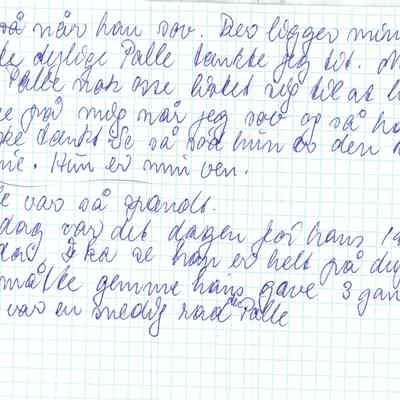 så når han sov. Der ligger min
dejlige Palle tænkte jeg tit.
Palle nok osse listet sig til at
på mig når jeg sov og så
tænkt se så sød hun er den
Hun er min ven.
var så spændt.
dag var det dagen for hans
I ka se han er helt på
måtte gemme hans gave 3 gan
var en snedig rad de Palle